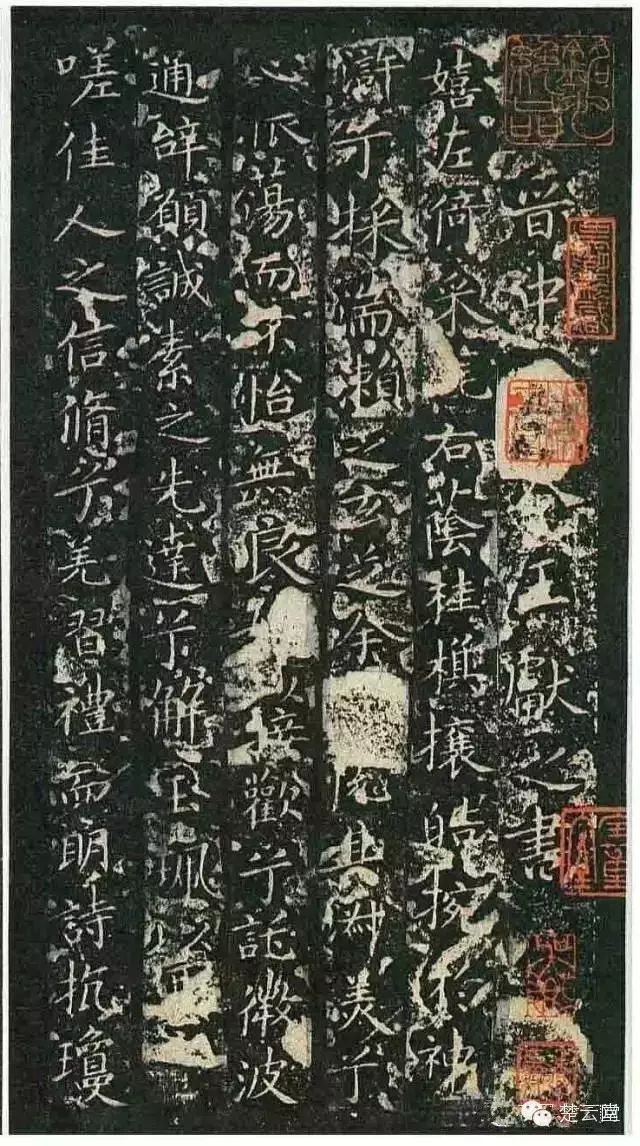 晉中令王獻之書
嬉左倚采旄右蔭桂旗攘皓捥於神
滸兮採湍瀨之玄芝余悅其淑美兮
心振蕩而不怡無良以接歡兮託微波
通辭願誠素之先達兮解玉珮以要
嗟佳人之信脩兮羌習禮而明詩抗瓊
楚云堂